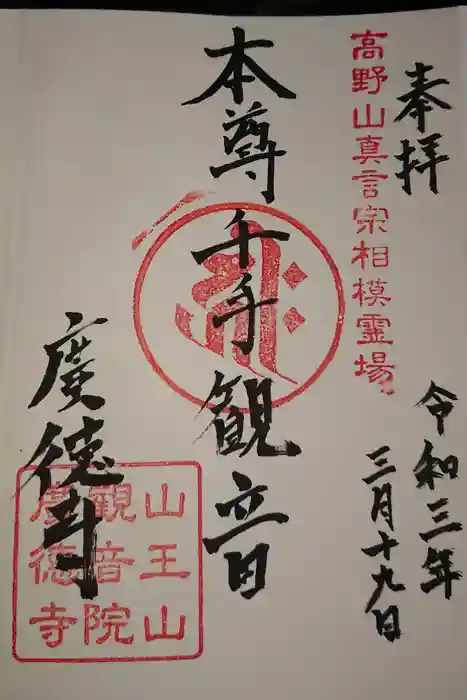 奉拝
令和三年
三月十九日
高野山真言宗相模霊場
本尊千手観音
廣德寺
山王山
観音院
廣徳寺